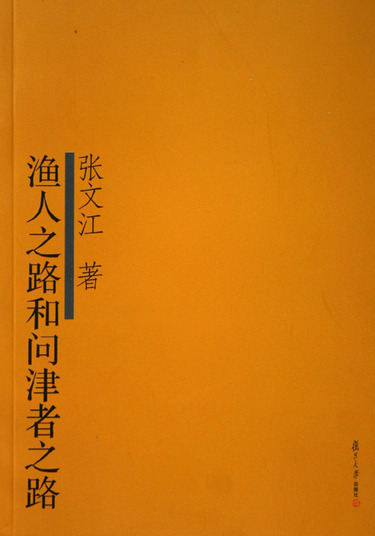 渔人之路和问津者之路
张文江 著
復旦大学
出版社